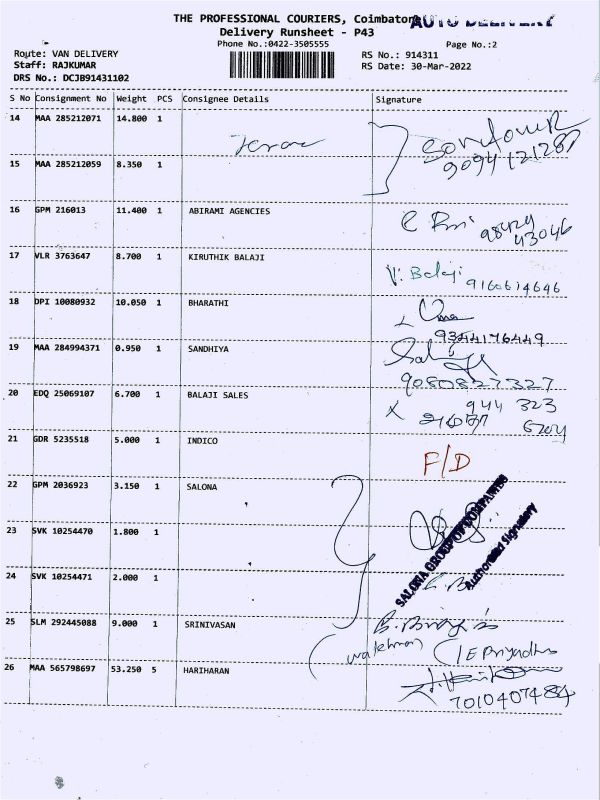 THE PROFESSIONAL COURIERS, Coimbatore
AUTO DELIVERY
Delivery Runsheet - P43
Phone No.:0422-3505555
Page No.:2
Route: VAN DELIVERY
RS No.: 914311
Staff: RAJKUMAR
RS Date: 30-Mar-2022
DRS No.: DCJB91431102
S No Consignment No Weight PCS Consignee Details Signature
14 MAA 285212071 14.800 1
15 MAA 285212059 8.350 1
16 GPM 216013 11.400 1 ABIRAMI AGENCIES
98424
43046
17 VLR 3763647 8.700 1 KIRUTHIK BALAJI V. Balaji 9160614646
18 DPI 10080932 10.050 1 BHARATHI Uma
9344176449
19 MAA 284994371 0.950 1 SANDHIYA
9080827327
20 EDQ 25069107 6.700 1 BALAJI SALES 944 323
6704
21 GDR 5235518 5.000 1 INDICO F/D
22 GPM 2036923 3.150 1 SALONA
23 SVK 10254470 1.800 1
24 SVK 10254471 2.000 1
SALONA GROUP OF COMPANIES
Authorised Signatory
25 SLM 292445088 9.000 1 SRINIVASAN
(watchman)
26 MAA 565798697 53.250 5 HARIHARAN
7010407484